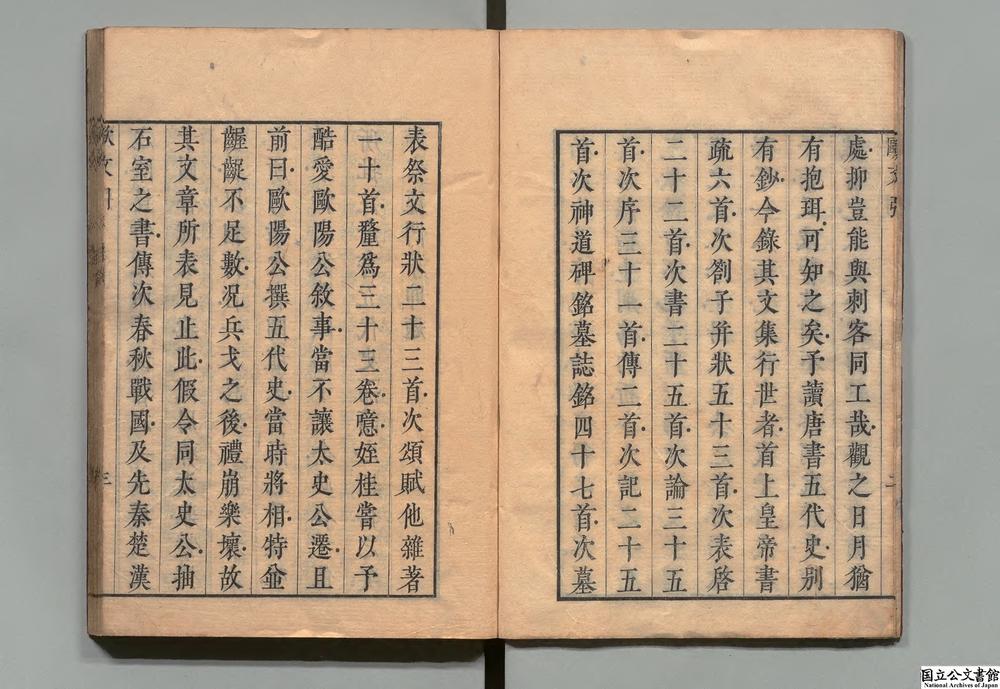 處抑豈能與刺客同工哉觀之日月猶
有抱珥可知之矣予讀唐書五代史别
有鈔今錄其文集行世者首上皇帝書
疏六首次劄子并狀五十三首次表啓
二十二首次書二十五首次論三十五
首次序三十一首傳二首次記二十五
首次神道碑銘墓誌銘四十七首次墓
二
表祭文行狀二十三首次頌賦他雜著
一十首釐爲三十三卷噫姪桂嘗以予
酷愛歐陽公敘事當不讓太史公遷且
前曰歐陽公撰五代史當時將相特並
齷齪不足數况兵戈之後禮崩樂壞故
其文章所表見止此假令同太史公抽
石室之書傳次春秋戰國及先秦楚漢
三
国立公文書館
National Archives of Japan